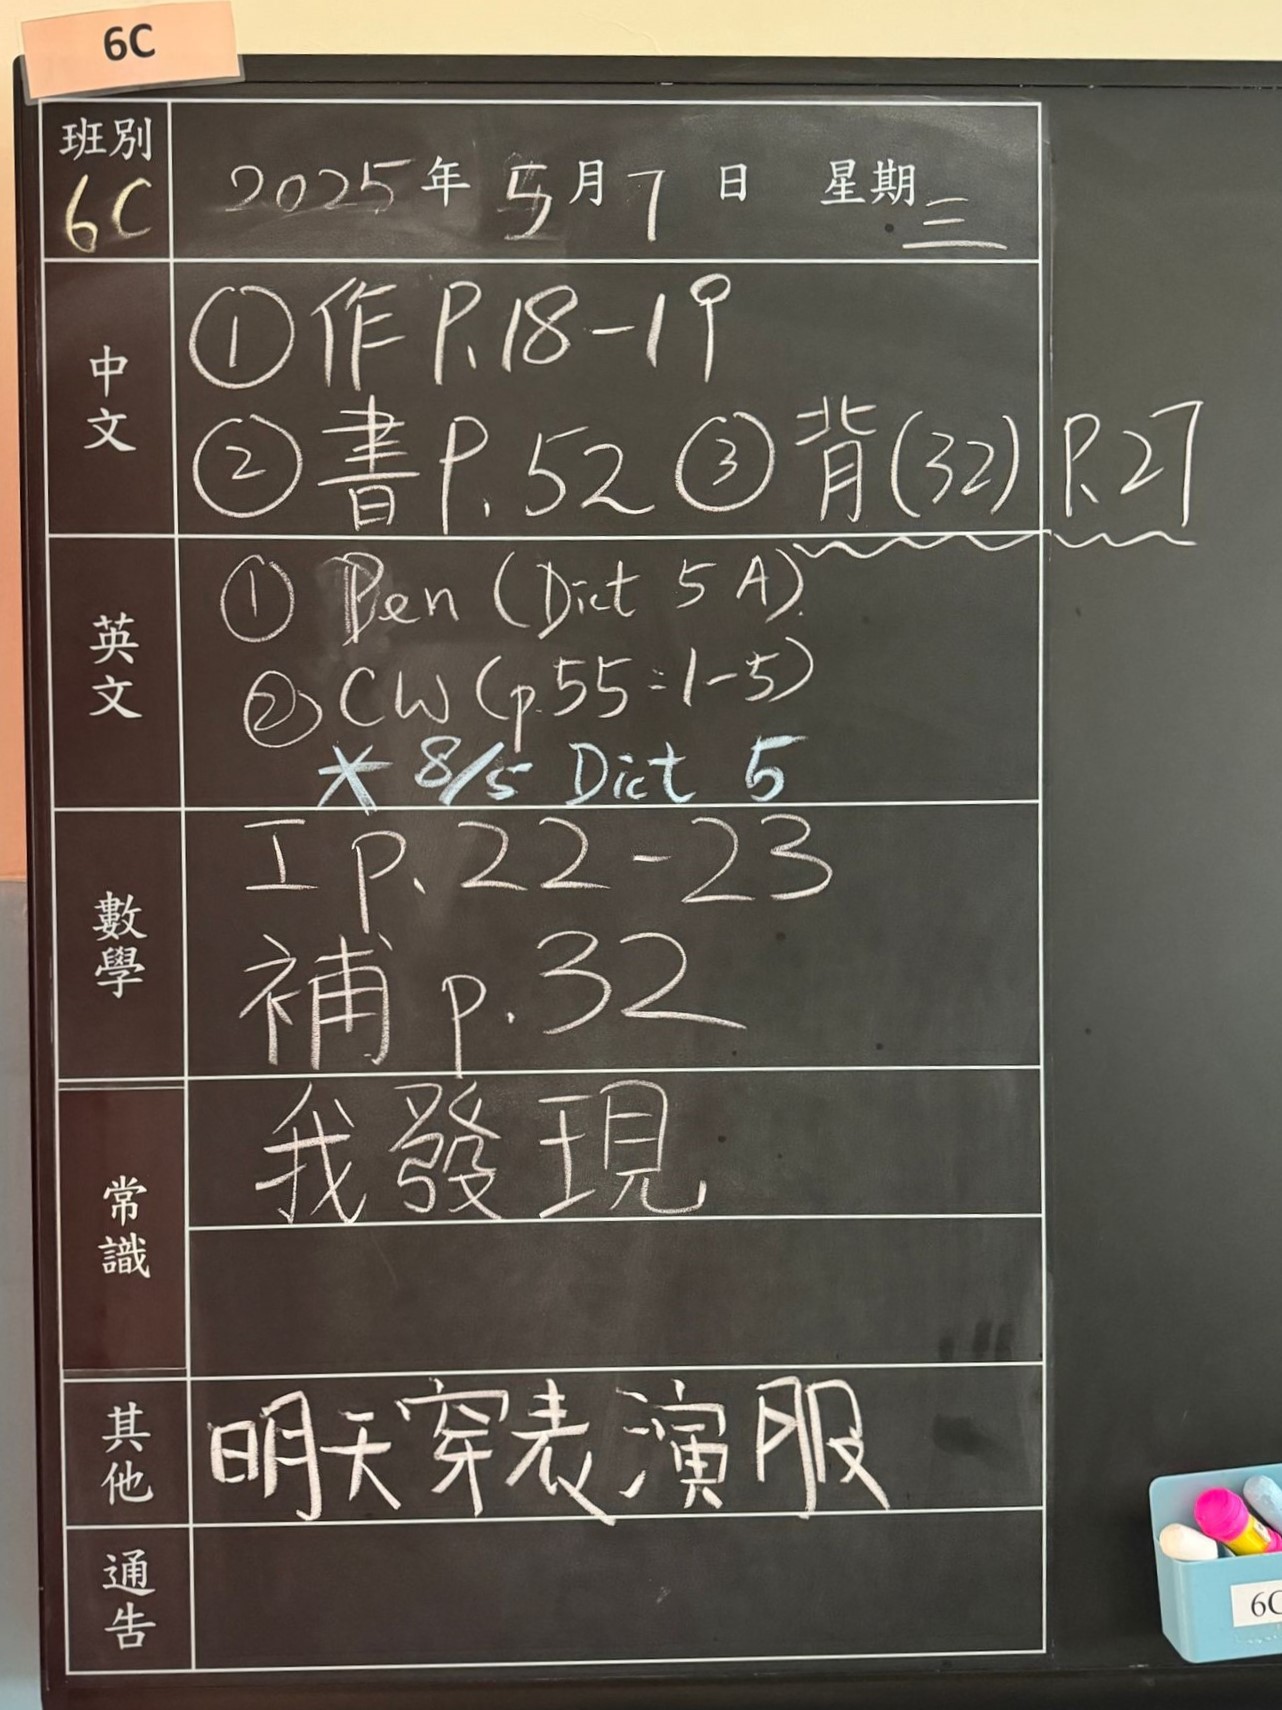 6C
班別
6C
2025年5月7日 星期三
中文
①作P.18-19
②書P.52 ③背(32) P.27
英文
① Pen (Dict 5A)
② CW (p.55:1-5)
* 8/5 Dict 5
數學
工p.22-23
補p.32
常識
我發現
其他
明天穿表演服
通告
6C